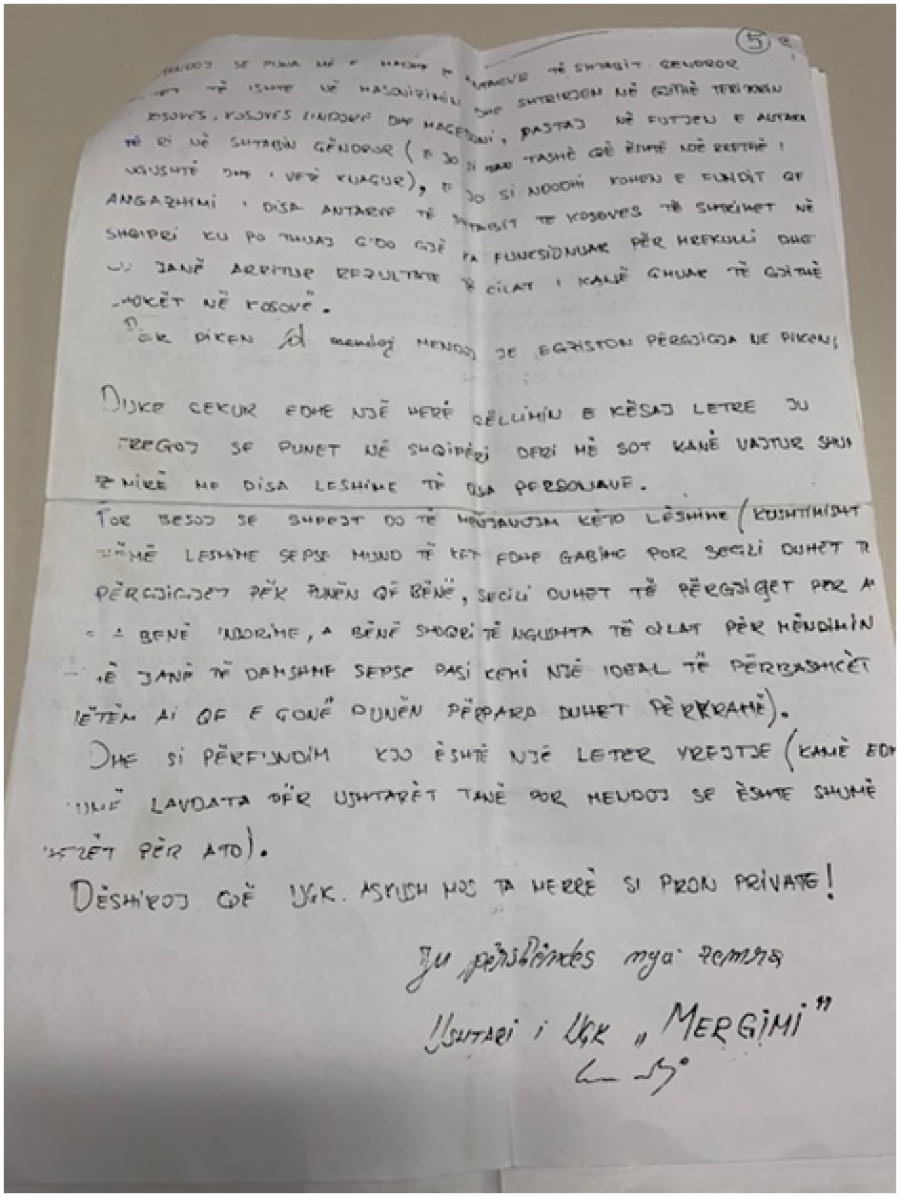 5
MENDOJ SE PUNA MË E MADHE E ANTARVE TË SHTABIT QENDROR
TË ISHTE NË MASOVIZIMIN DHE SHTRIRJEN NË GJITHË TERITORIN
KOSOVËS, KOSOVËS LINDORE DHE MAQEDONI, PASTAJ NË FUTJEN E
TË RI NË SHTABIN QËNDROR (E JO SI TASHË QË ËSHTË NDË RRETHË I
NGUSHTË DHE I VETË), E JO SI NDODHI KOHEN E FUNDIT QË
ANGAZHIMI I DISA ANTARVE TË SHTABIT TE KOSOVES TË SHTRIHET NË
SHQIPRI KU PO THUAJ Ç'DO GJË KA FUNKSIONUAR PËR MREKULLI DHE
JANË ARRITUR REZULTATE TË CILAT I KANË GËZUAR TË GJITHË
SHOKËT NË KOSOVË.
PËR PIKEN d mendoj MENDOJ SE EGZISTON PËRGJIGJA NE PIKEN
DUKE CEKUR EDHE NJË HERË QËLLIMIN E KËSAJ LETRE JU
TREGOJ SE PUNET NË SHQIPËRI DERI MË SOT KANË VAJTUR
MIRË ME DISA LESHIME TË DISA PERSONAVE.
POR BESOJ SE SHPEJT DO TË MËNJANOJM KËTO LËSHIME (KUSHTIMISHT
LESHIME SEPSE MUND TË KET EDHE GABIME POR SECILI DUHET T
PËRGJIGJET PËR PUNËN QË BËNË, SECILI DUHET TË PËRGJIGJET PER A
BENË NDORIME, A BËNË SHOQRI TË NGUSHTA TË CILAT PËR MËNDIMIN
JANË TË DAMSHME SEPSE PASI KEMI NJË IDEAL TË PËRBASHKËT
VETËM AI QË E ÇONË PUNËN PËRPARA DUHET PËRKRAHË).
DHE SI PËRFUNDIM KJO ËSHTË NJË LETER VREJTJE (KAMË EDH
SHUMË LAVDATA PËR USHTARËT TANË POR MENDOJ SE ËSHTE SHUMË
HERËT PËR ATO).
DËSHIROJ QË UÇK. ASKUSH MOS TA MERRË SI PRON PRIVATE!
Ju përshëndes nga zemra
USHTARI I UÇK „MERGIMI"